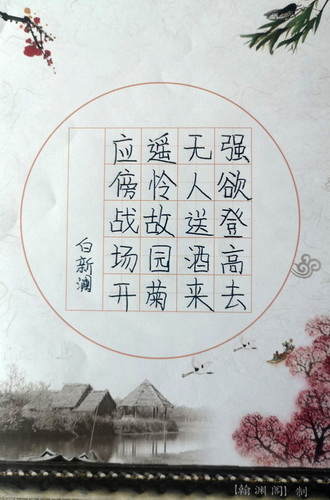 强欲登高去
无人送酒来
遥怜故园菊
应傍战场开
白新澜
【翰渊阁】制